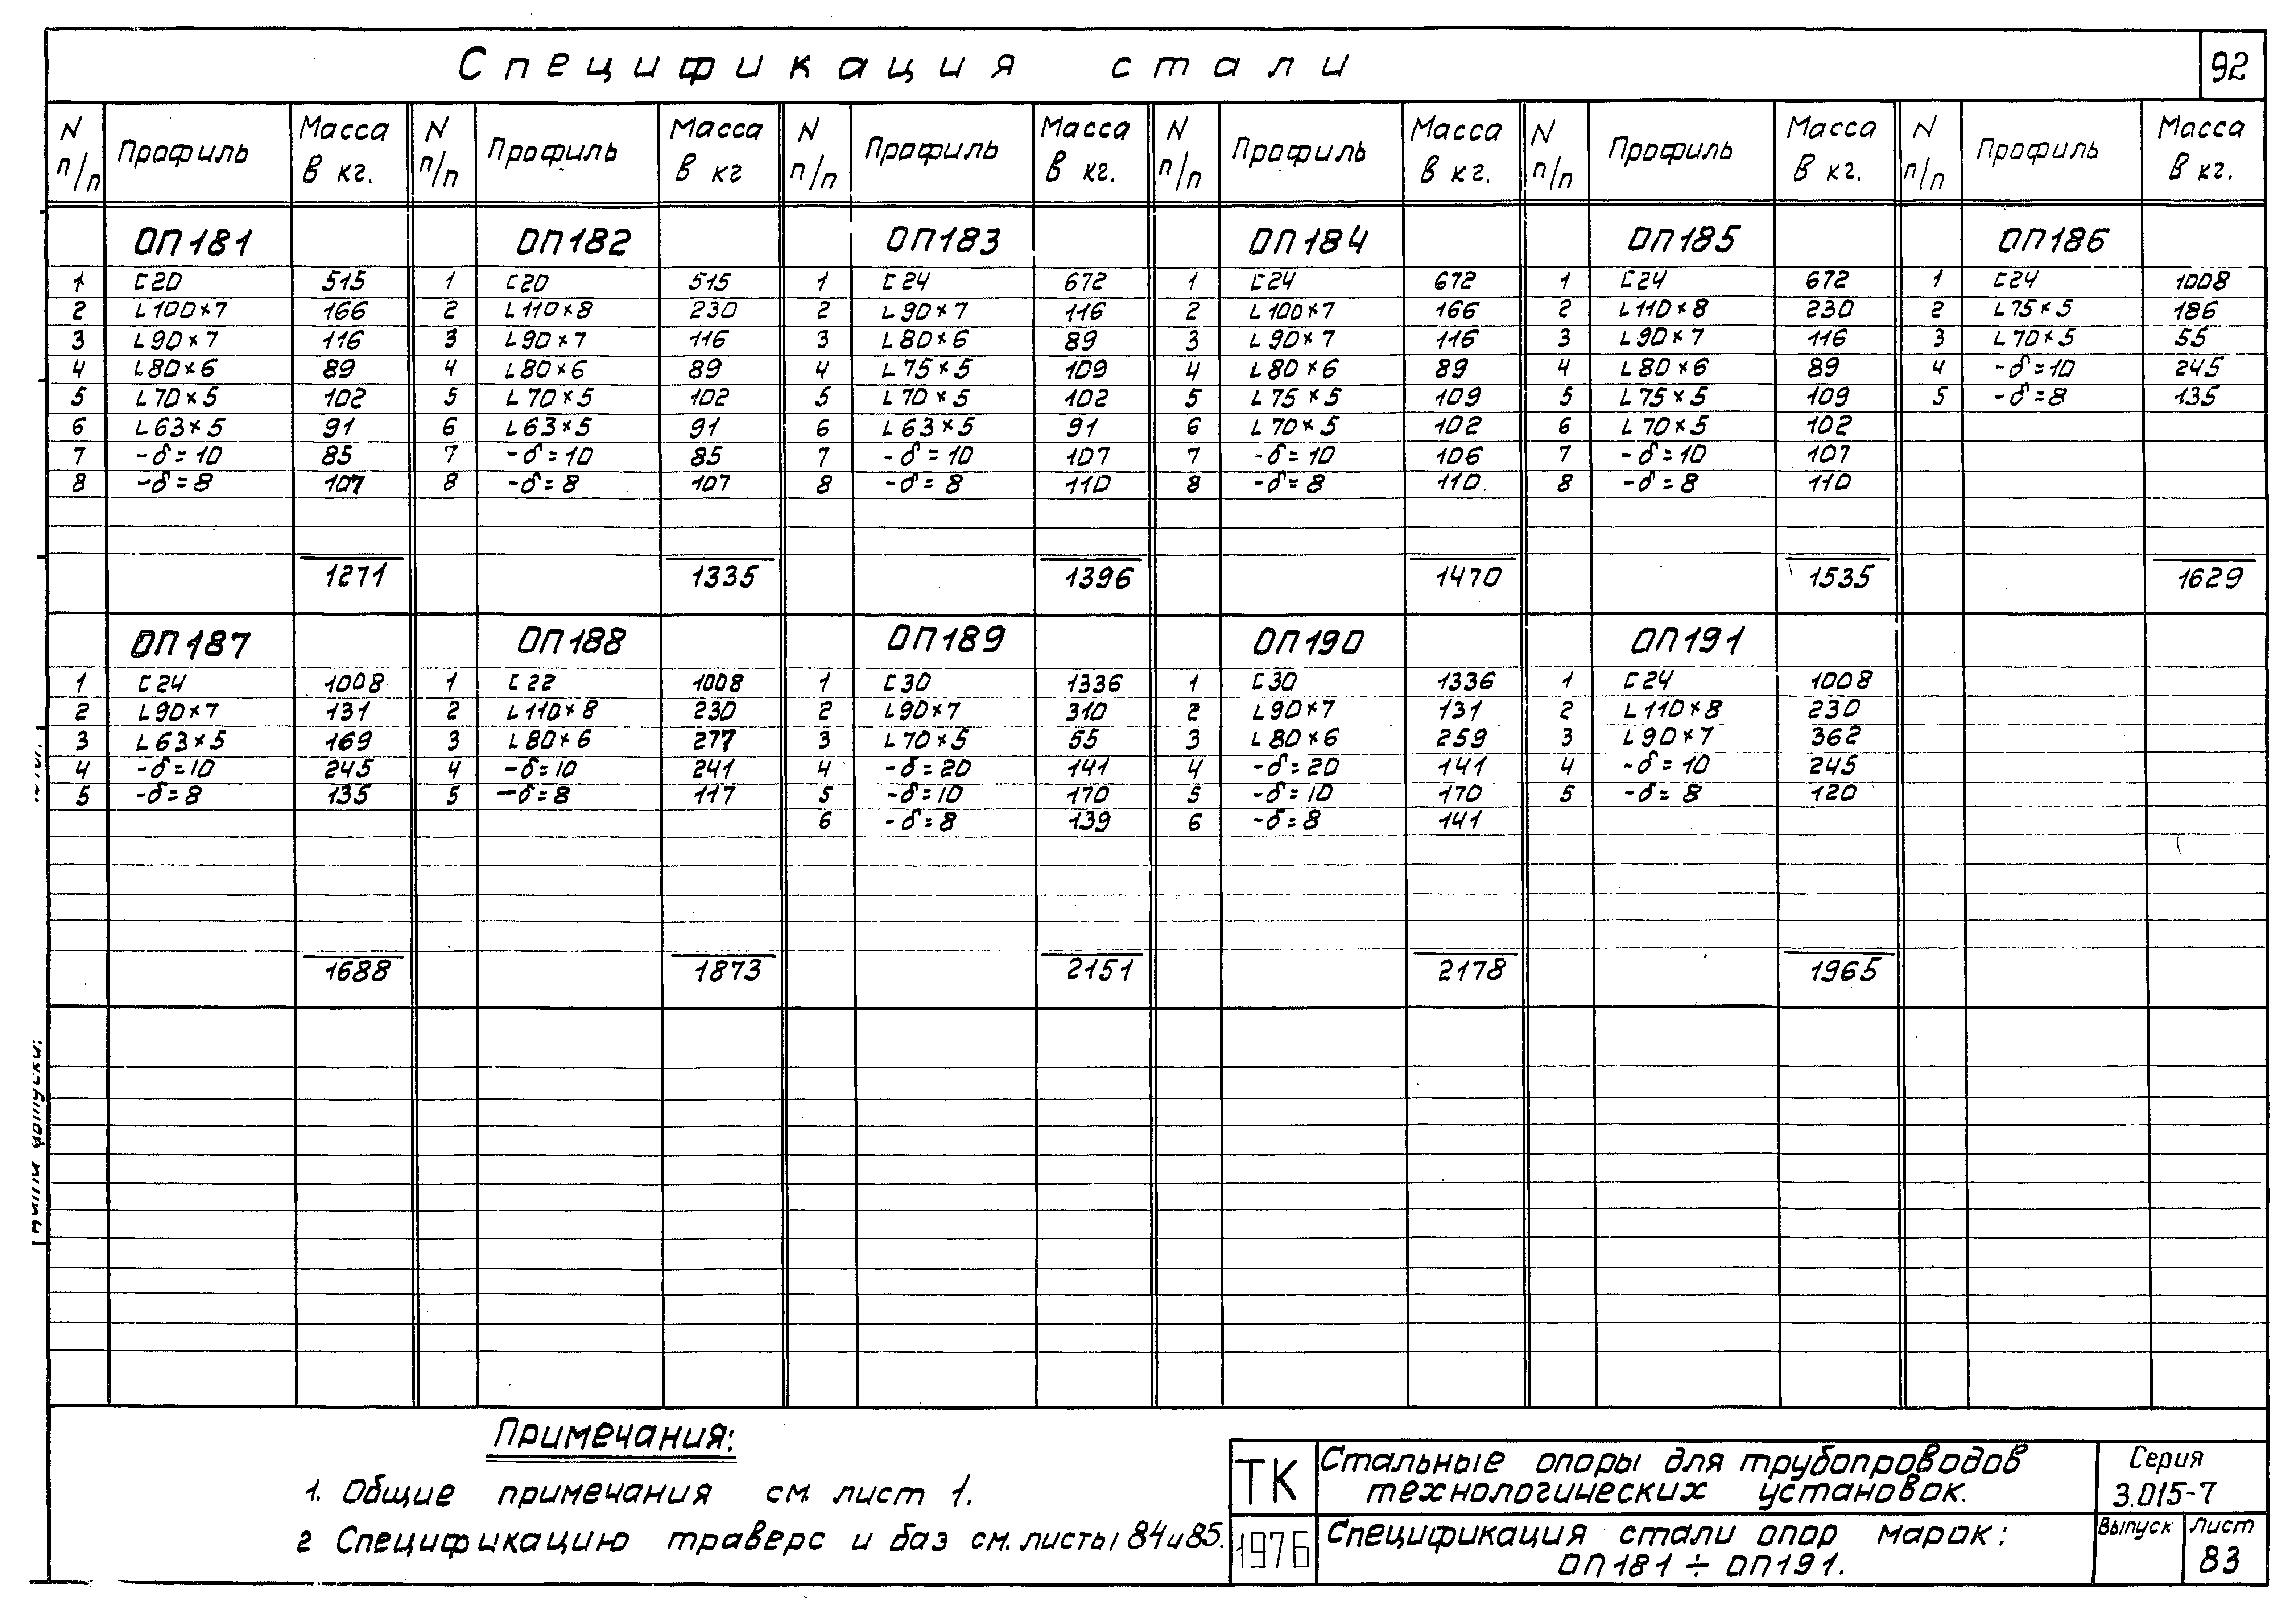 Спецификация стали 92
N п/п Профиль Масса в кг. N п/п Профиль Масса в кг N п/п Профиль Масса в кг. N п/п Профиль Масса в кг. N п/п Профиль Масса в кг. N п/п Профиль Масса в кг.
ОП181 ОП182 ОП183 ОП184 ОП185 ОП186
1 [20 515 1 [20 515 1 [24 672 1 [24 672 1 [24 672 1 [24 1008
2 L100×7 166 2 L110×8 230 2 L90×7 116 2 L100×7 166 2 L110×8 230 2 L75×5 186
3 L90×7 116 3 L90×7 116 3 L80×6 89 3 L90×7 116 3 L90×7 116 3 L70×5 55
4 L80×6 89 4 L80×6 89 4 L75×5 109 4 L80×6 89 4 L80×6 89 4 -δ=10 245
5 L70×5 102 5 L70×5 102 5 L70×5 102 5 L75×5 109 5 L75×5 109 5 -δ=8 135
6 L63×5 91 6 L63×5 91 6 L63×5 91 6 L70×5 102 6 L70×5 102
7 -δ=10 85 7 -δ=10 85 7 -δ=10 107 7 -δ=10 106 7 -δ=10 107
8 -δ=8 107 8 -δ=8 107 8 -δ=8 110 8 -δ=8 110 8 -δ=8 110
1271 1335 1396 1470 1535 1629
ОП187 ОП188 ОП189 ОП190 ОП191
1 [24 1008 1 [22 1008 1 [30 1336 1 [30 1336 1 [24 1008
2 L90×7 131 2 L110×8 230 2 L90×7 310 2 L90×7 131 2 L110×8 230
3 L63×5 169 3 L80×6 277 3 L70×5 55 3 L80×6 259 3 L90×7 362
4 -δ=10 245 4 -δ=10 241 4 -δ=20 141 4 -δ=20 141 4 -δ=10 245
5 -δ=8 135 5 -δ=8 117 5 -δ=10 170 5 -δ=10 170 5 -δ=8 120
6 -δ=8 139 6 -δ=8 141
1688 1873 2151 2178 1965
Примечания:
1. Общие примечания см. лист 1.
2 Спецификацию траверс и баз см. листы 84 и 85.
ТК
1976
Стальные опоры для трубопроводов
технологических установок.
Спецификация стали опор марок:
ОП181 ÷ ОП191.
Серия
3.015-7
Выпуск Лист
83